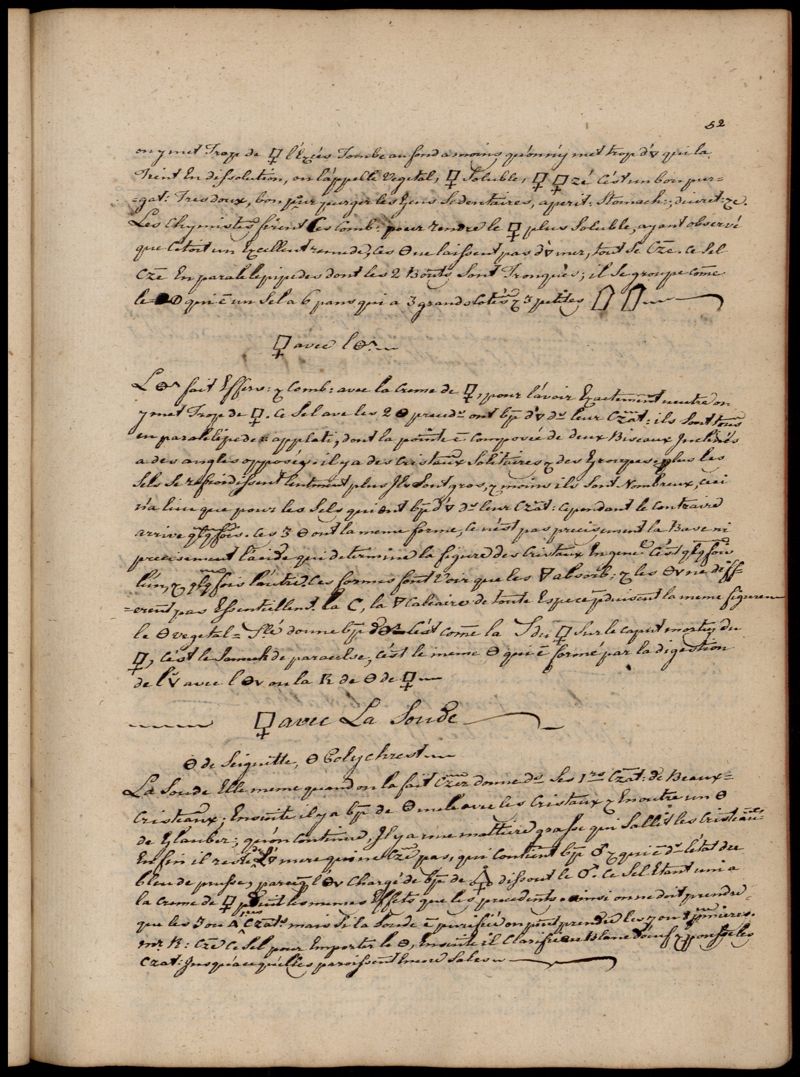 52
on y met Trop de 🜿 l'Excés Tombe au fond a moins qu'on n'y met trop d'🜄 qui la
Tient En dissolution, on l'appelle Vegetal, 🜿 Soluble, 🜿 🜿zé c'est un bon pur=
=gat: Tres doux, bon pour purger les Gens Sedentaires, aperit: Stomach:, diuret: &c.
Les Chymistes firent ces Comb: pour rendre le 🜿 plus Soluble, ayant observé
que c'etoit un Excellent remede, ces Θ ne laissent pas d'🜄 mer, tout se Cze. Ce Sel
Cze En parallelepipedes dont les 2 Bouts Sont Tronqués; il Se groupe come
le Θ qui ē un Sel a 6 pans qui a 3 grands cotés & 3 petites
🜿 avec l'Θ
L'Θ fait Efferv: & Comb: avec la Creme de 🜿, pour l'avoir Exactement neutre on
y met Trop de 🜿. Ce Sel avec les 2 Θ preced.s ont bp d'🜄 d.s leur Czat: ils Sont tous
en paralelipede applati, dont la pointe ē Composée de deux Biseaux Inclinés
a des angles opposés; il y a des Cristaux Solitaires & des Groupes; plus les
Sels Se refroidissent lentement plus Ils Sont gros, & moins ils Sont Nombreux, ceci
n'a lieu que pour les Sels qui ont bp d'🜄 d.s leur Czat: cependant le Contraire
arrive qlqfois. Ces 3 Θ ont la meme forme, Ce n'est pas precisement la Base ni
precisement l'acide qui determine la figure des Cristaux En gen.l C'est qlqfois
l'un, & qlqfois l'autre, Ces formes font voir que les 🜃 absorb: & les Θ ne diff
=erent pas Essentiellem.t la C, la 🜃 Calcaire de toute Espece produisent la meme figure
le Θ vegetal = donne bp c'est come la du 🜿 Sur le caput mortuu du
🜿, C'est le Samech de paracelse, c'est le meme Θ qui ē formé par la digestion
de l' avec l'Θ ou la R de Θ de 🜿
🜿 avec La Soude
Θ de Seignette, Θ Polychrest
La Soude Elle meme quand on la fait Czer donne d.s Ses 1.res Czat: de Beaux=
Cristaux; Ensuite il y a bp de Θ mele avec les Cristaux & En outre un Θ
de Glauber; qu'on Continue, Il y a une mattiere grasse qui Sallit les Cristaux
Enfin il reste l'🜄 mere qui ne Cze pas, qui contient bp & qui ē d.s l'etat du
bleu de prusse, parceq l'Θ Chargé de bp de 🜍 dissout le . Ce Sel Etant uni a
la Creme de 🜿 les memes Effets que les precedents. ainsi on ne doit prendre
que les 3 ou 4 Czat.s mais Si la Soude ē purifiée on peut prendre les 7 ou 8 premieres.
mr R: Cze Ce Sel pour Emporter le Θ, Ensuite il Clarifie au blanc d'oeuf & pousse les
Czat: Jusqu'a ce qu'elles paroissent Encore Sales